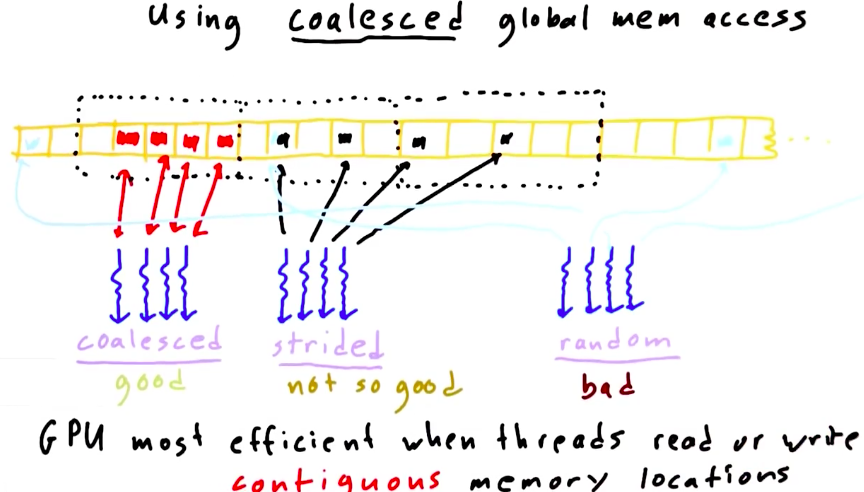 Using coalesced global mem access
coalesced strided random
good not so good bad
GPU most efficient when threads read or write
contiguous memory locations